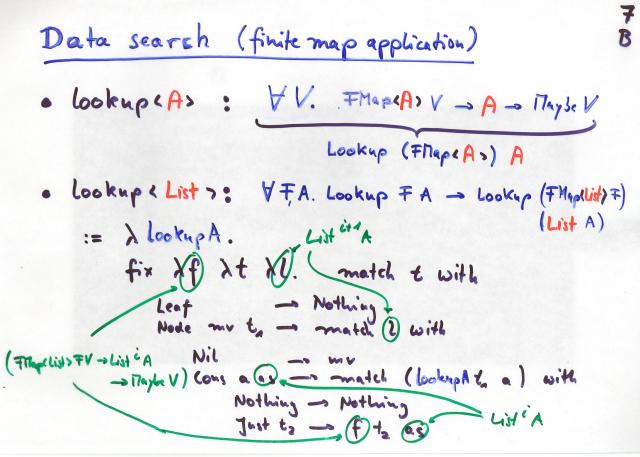 7
B
Data search (finite map application)
• lookup<A> : ∀V. FMap<A> V → A → Maybe V
Lookup (FMap<A>) A
• lookup<List> : ∀F,A. Lookup F A → Lookup (FMap<List> F)
(List A)
:= λ lookupA.
List^{i+1} A
fix λf λt λl. match t with
Leaf → Nothing
Node mv t₁ → match l with
(FMap<List> F V → List^i A
→ Maybe V)
Nil → mv
Cons a as → match (lookupA t₁ a) with
Nothing → Nothing
Just t₂ → f t₂ as
List^i A